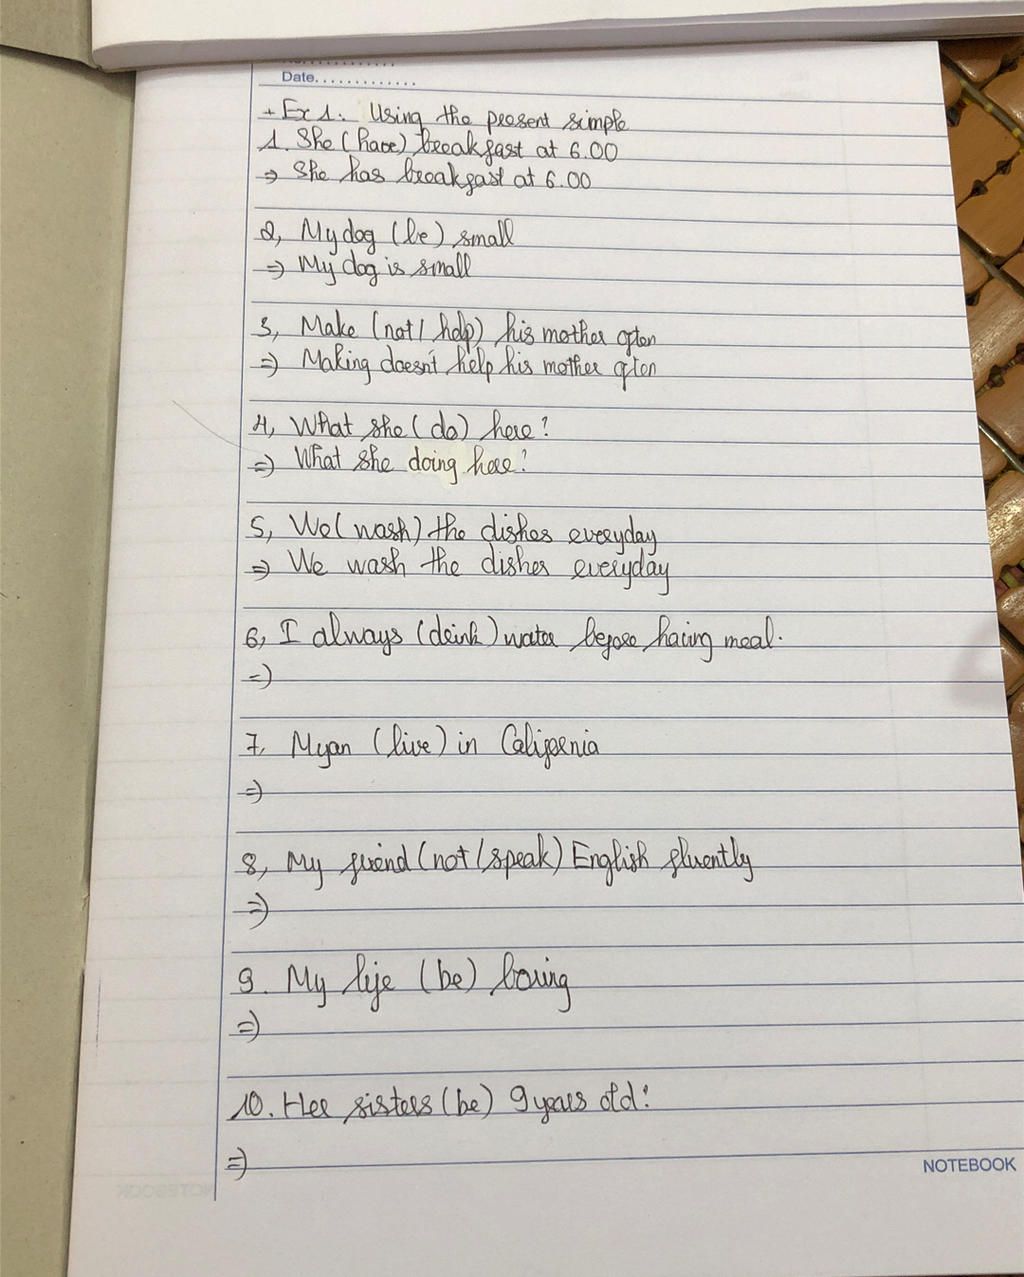 Date.............
+ Ex 1: Using the present simple
1. She (have) breakfast at 6.00
=> She has breakfast at 6.00
2, My dog (be) small
=> My dog is small
3, Make (not / help) his mother often
=> Making doesn't help his mother often
4, What she (do) here?
=> What she doing here?
5, We (wash) the dishes everyday
=> We wash the dishes everyday
6, I always (drink) water before having meal.
=>
7, Myan (live) in California
=>
8, My friend (not / speak) English fluently
=>
9. My life (be) boring
=>
10. Her sisters (be) 9 years old!
=>
NOTEBOOK